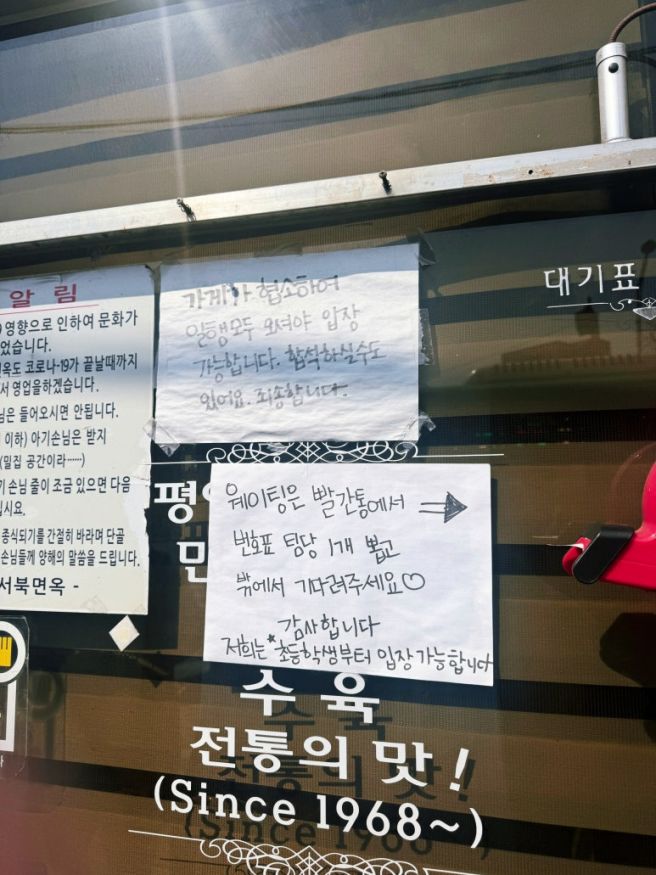 알 림
영향으로 인하여 문화가
었습니다.
옥도 코로나-19가 끝날때까지
서 영업을하겠습니다.
님은 들어오시면 안됩니다.
이하) 아기손님은 받지
(밀집 공간이라……)
기 손님 줄이 조금 있으면 다음
십시요.
종식되기를 간절히 바라며 단골
손님들께 양해의 말씀을 드립니다.
서북면옥 -
가게가 협소하여
일행모두 오셔야 입장
가능합니다. 합석하실수도
있어요. 죄송합니다.
대기표
평
만
웨이팅은 빨간통에서 ⇒
번호표 팀당 1개 뽑고
밖에서 기다려주세요♡
감사합니다
저희는 *초등학생부터 입장가능합니다
수 육
전통의 맛!
(Since 1968~)